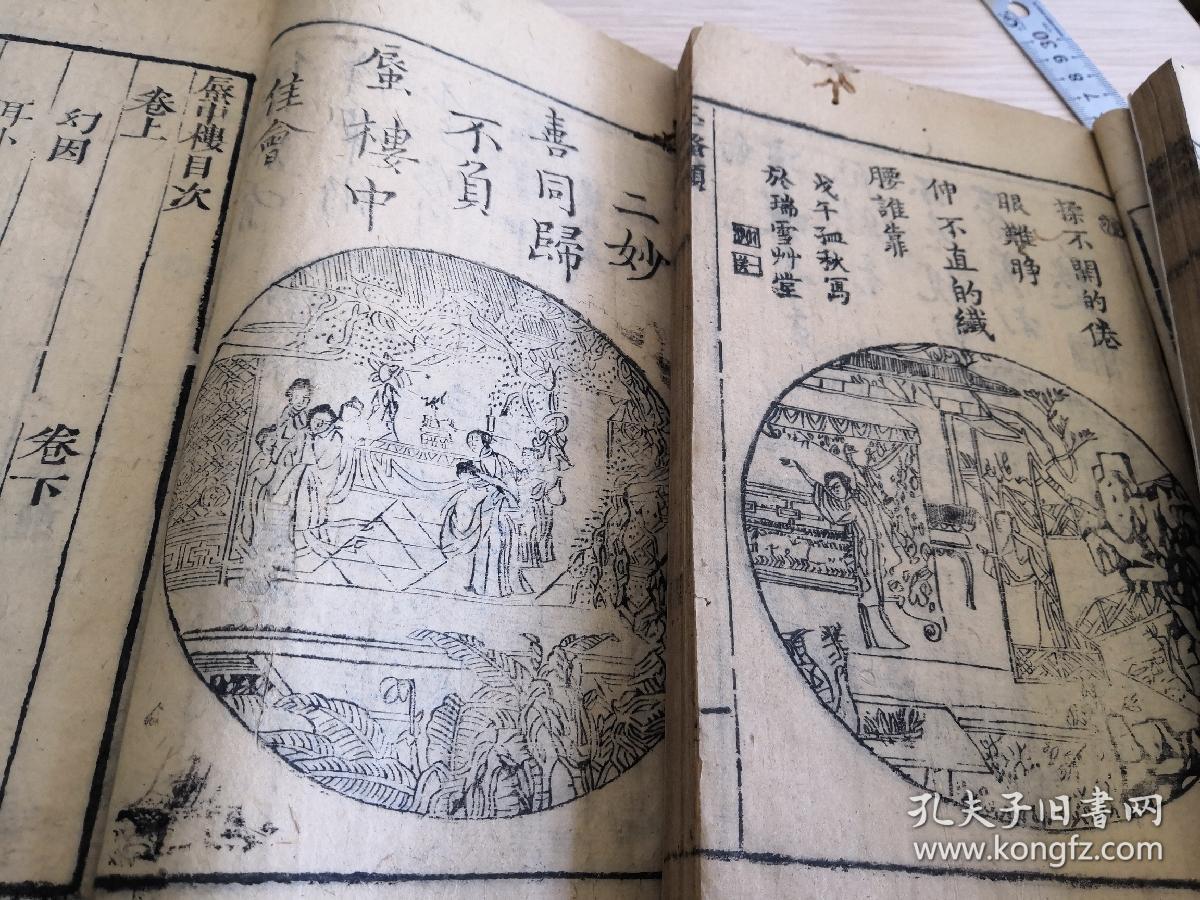 揉不開的倦
眼難睜
伸不直的纖
腰誰靠
戊午孤秋寫
於瑞雪艸堂
二妙
喜同歸
不負
蜃樓中
佳會
蜃中樓目次
卷上
幻因
卷下
孔夫子旧書网
www.kongfz.com